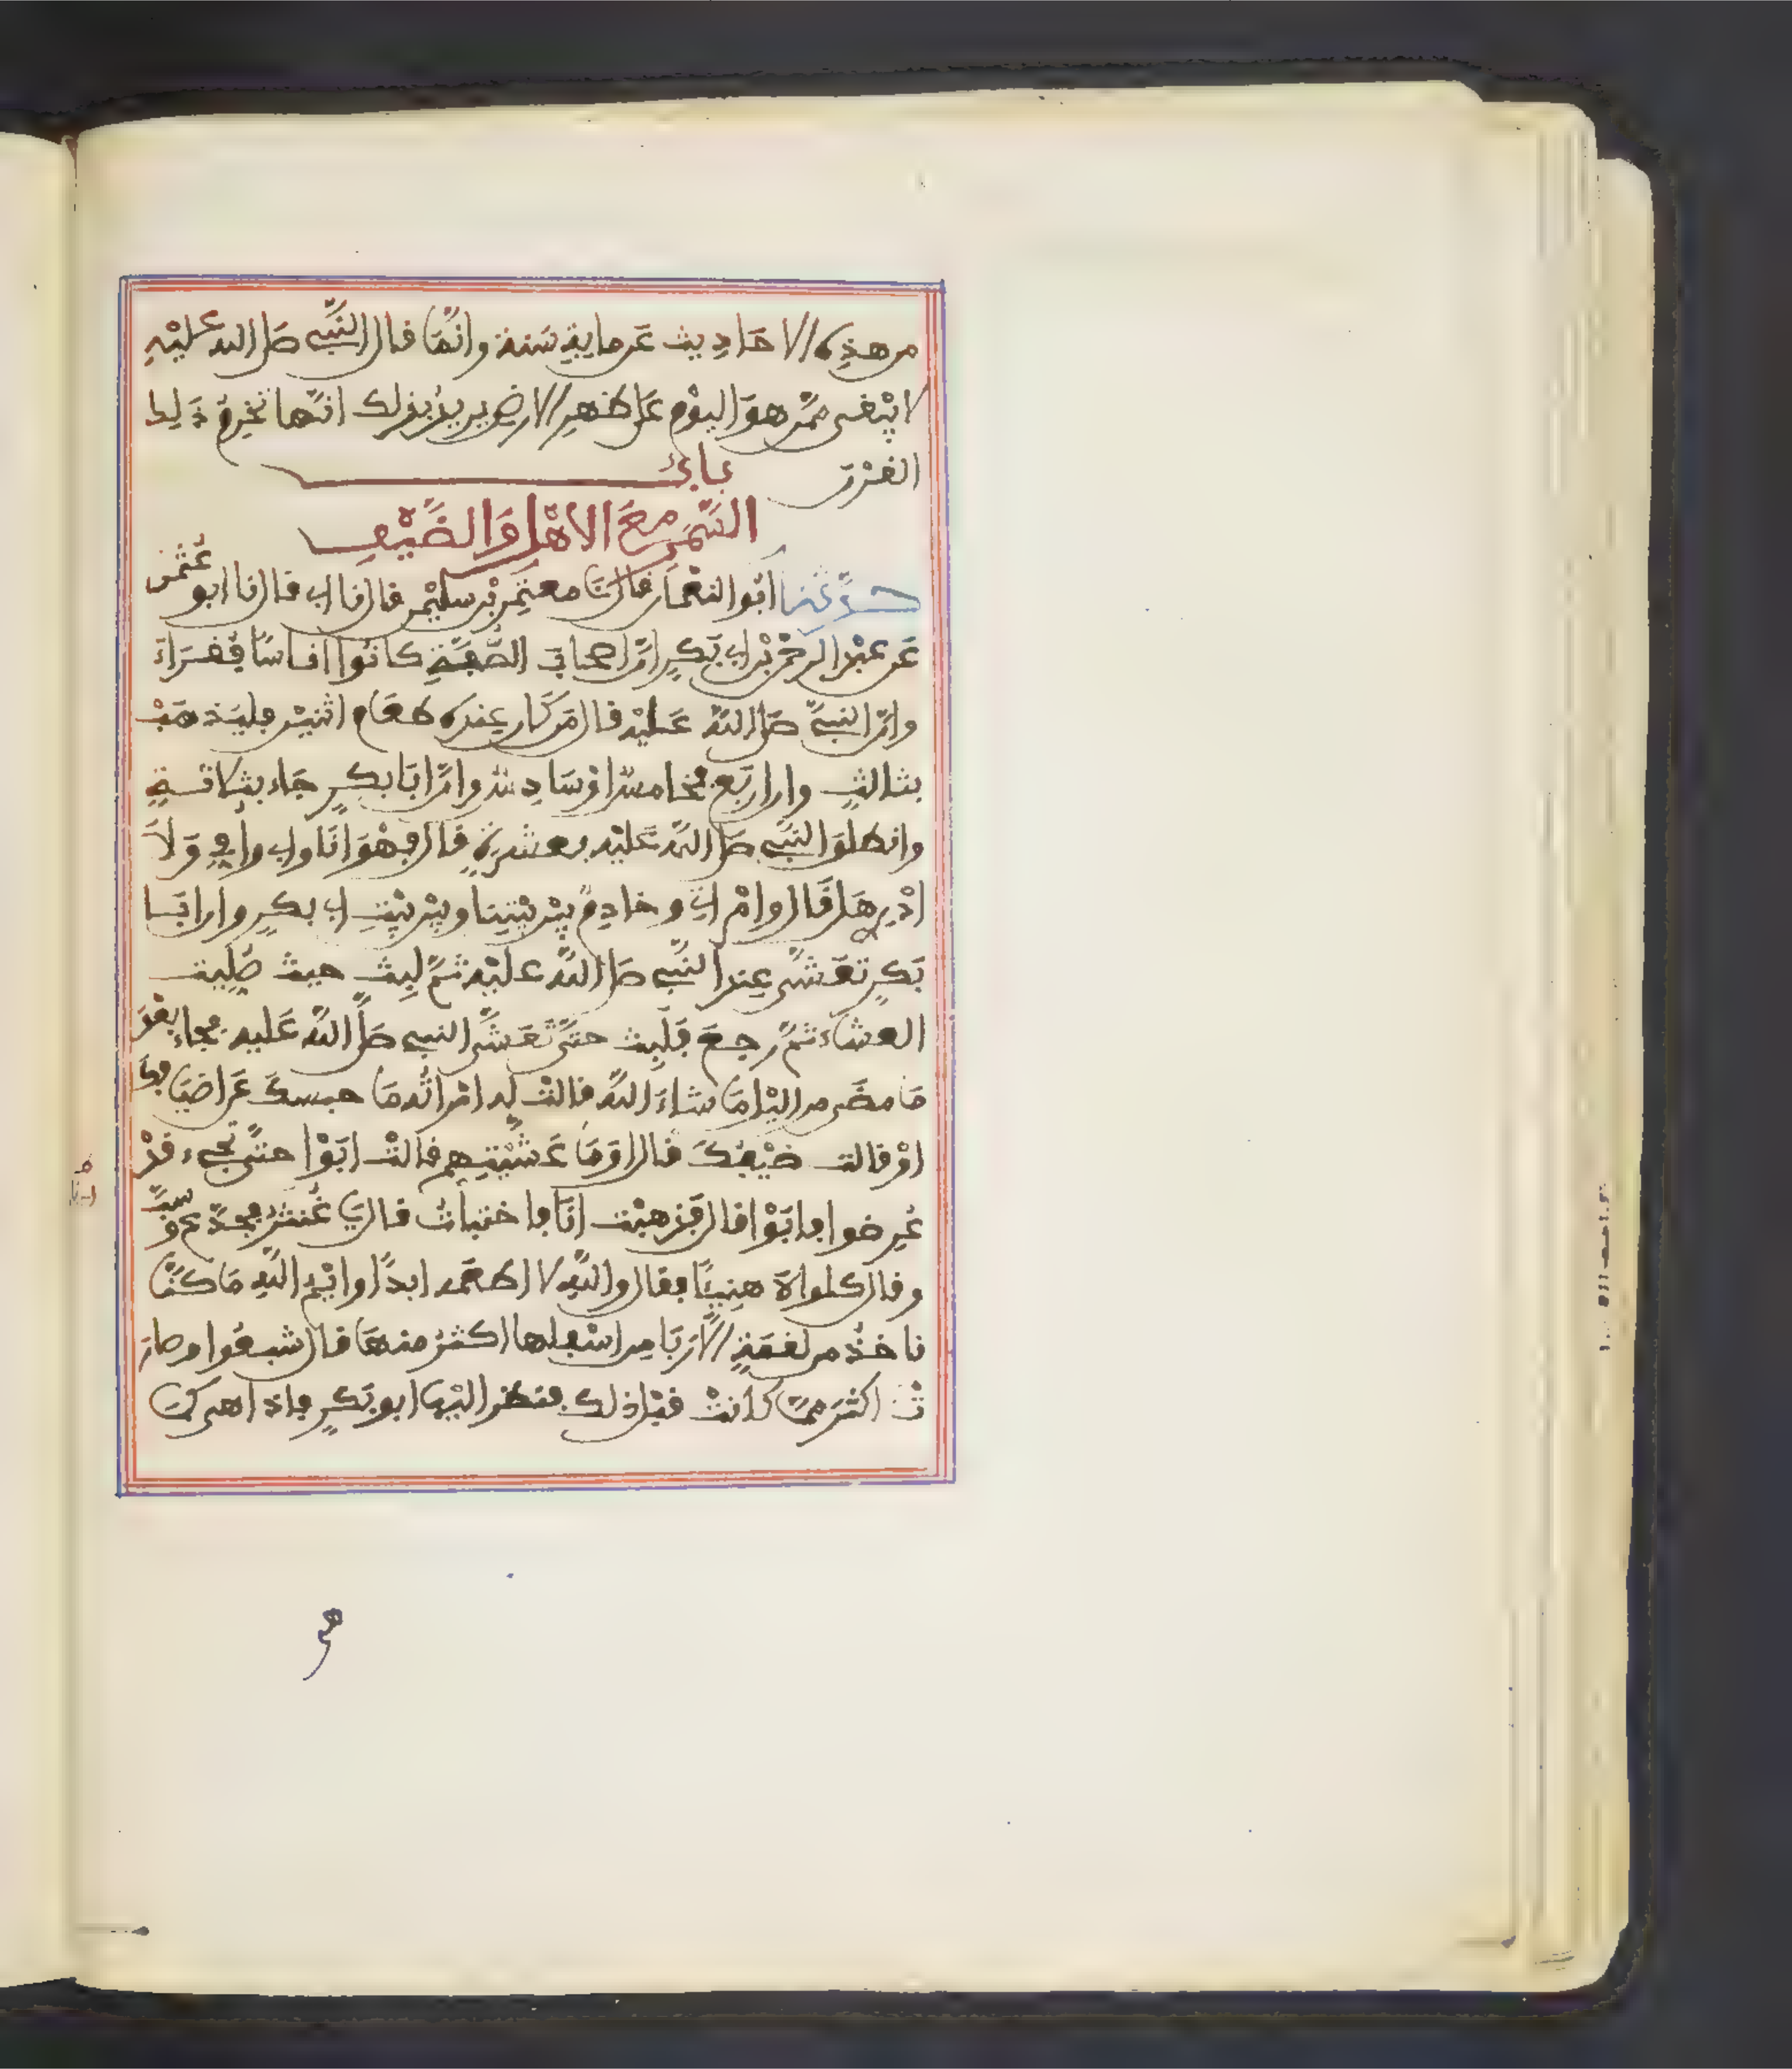 من هذه الاحاديث عن ماية سنة وانما قال النبي صلى الله عليه
لا يبقى ممن هو اليوم على ظهر الارض يريد بذلك انها تخرم ذلك
القرن باب
السمر مع الاهل والضيف
حدثنا ابو النعمان قال نا معتمر بن سليمن قال نا ابي قال نا ابو عثمن
عن عبد الرحمن بن ابي بكر ان اصحاب الصفة كانوا اناسا فقراء
وان النبي صلى الله عليه قال من كان عنده طعام اثنين فليذهب
بثالث وان اربع فخامس او سادس وان ابا بكر جاء بثلاثة
وانطلق النبي صلى الله عليه بعشرة قال فهو انا وابي وامي ولا
ادري هل قال وامراتي وخادم بين بيتنا وبين بيت ابي بكر وان ابا
بكر تعشى عند النبي صلى الله عليه ثم لبث حيث صليت
العشاء ثم رجع فلبث حتى تعشى النبي صلى الله عليه فجاء بعد
ما مضى من اليل ما شاء الله قالت له امراته ما حبسك عن اضيافك
او قالت ضيفك قال اوما عشيتهم قالت ابوا حتى تجيء قد
عرضوا فابوا قال فذهبت انا فاختبات قال يا غنثر فجدع وسب
وقال كلوا لا هنيئا فقال والله لا اطعمه ابدا وايم الله ما كنا
ناخذ من لقمة الا ربا من اسفلها اكثر منها قال شبعوا وصار
ت اكثر مما كانت قبل ذلك فنظر اليها ابو بكر فاذا هي ك
هي